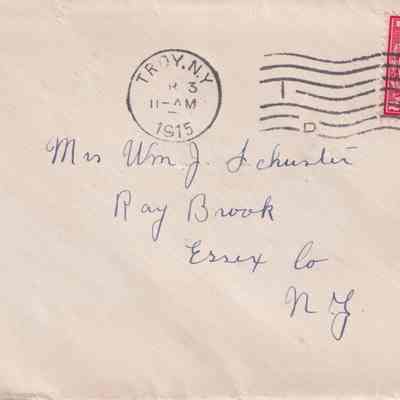 TROY, N.Y.
R 3
11-AM
1915
1
D
Mrs Wm J. Schuster
Ray Brook
Essex Co
N Y.